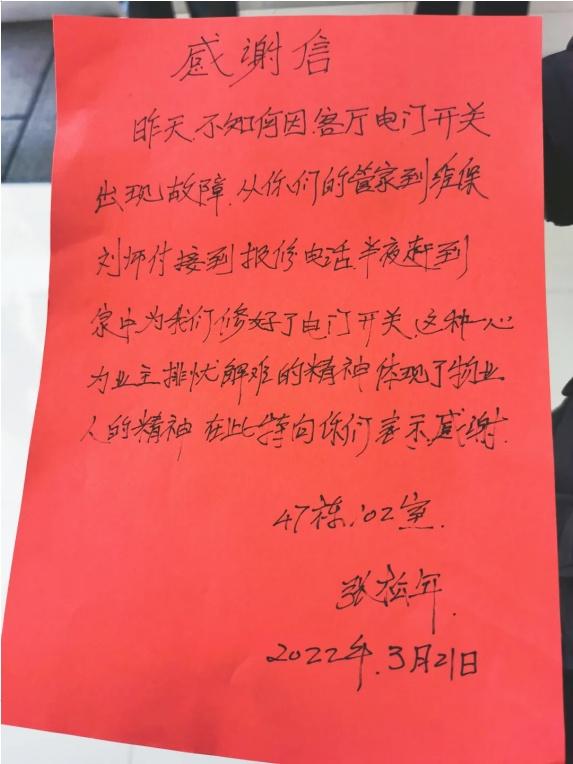 感谢信
昨天.不知何因.客厅电门开关
出现故障.从你们的管家到维保
刘师付接到报修电话.半夜赶到
家中为我们修好了电门开关.这种一心
为业主排忧解难的精神体现了物业
人的精神 在此特向你们表示感谢.
47栋102室.
张
2022年.3月21日